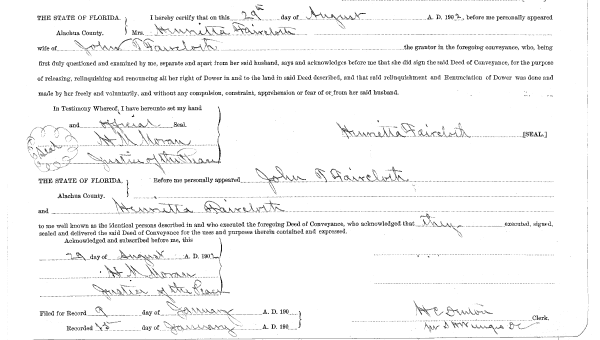 THE STATE OF FLORIDA. I hereby certify that on this 29th day of August A. D. 1902, before me personally appeared
Alachua County. Mrs. Henrietta Faircloth
wife of John T Faircloth the grantor in the foregoing conveyance, who, being
first duly questioned and examined by me, separate and apart from her said husband, says and acknowledges before me that she did sign the said Deed of Conveyance, for the purpose
of releasing, relinquishing and renouncing all her right of Dower in and to the land in said Deed described, and that said relinquishment and Renunciation of Dower was done and
made by her freely and voluntarily, and without any compulsion, constraint, apprehension or fear of or from her said husband.
In Testimony Whereof, I have hereunto set my hand
and official Seal.
H M Moran
Henrietta Faircloth [SEAL.]
Seal
Justice of the Peace
THE STATE OF FLORIDA. Before me personally appeared John T Faircloth
Alachua County.
and Henrietta Faircloth
to me well known as the identical persons described in and who executed the foregoing Deed of Conveyance, who acknowledged that they executed, signed,
sealed and delivered the said Deed of Conveyance for the uses and purposes therein contained and expressed.
Acknowledged and subscribed before me, this
29 day of August A. D. 1902
H M Moran
Justice of the Peace
Filed for Record 9 day of January A. D. 190
Clerk.
Recorded 15 day of January A. D. 190